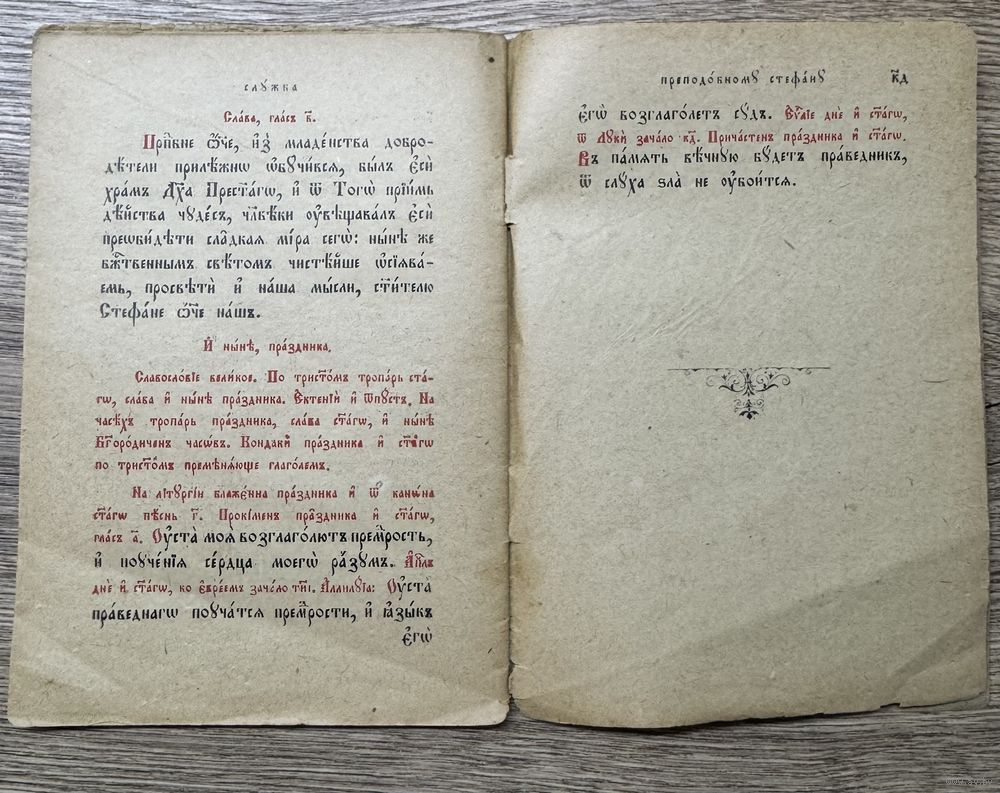 слꙋ́жба
Сла́ва, гла́съ в҃.
Прпⷣбне ѻ҆́ч҃е, и҆з̾ младе́нства добро-
дѣ́тели прилѣ́жнѡ ѡ҆бꙋчи́всѧ, бы́лъ є҆сѝ
хра́мъ Дх҃а Прест҃а́гѡ, и҆ ѿ Тогѡ̀ прїи́мь
дѣ̑йства чꙋде́съ, чл҃вѣ́ки ᲂу҆вѣщава́лъ є҆сѝ
преѡби́дѣти сла̑дкаѧ мі́ра сегѡ̀: ны́нѣ же
бж҃твеннымъ свѣ́томъ чистѣ́йше ѡ҆сїѧва́-
емь, просвѣтѝ и҆ на́ша мы̑сли, ст҃и́телю
Стефа́не ѻ҆́ч҃е на́шъ.
И҆ ны́нѣ, пра́здника.
Славосло́вїе вели́кое. По трист҃о́мъ тропа́рь ст҃а́-
гѡ, сла́ва и҆ ны́нѣ пра́здника. Є҆ктенїи̑ и҆ ѿпꙋ́стъ. На
часѣ́хъ тропа́рь пра́здника, сла́ва ст҃а́гѡ, и҆ ны́нѣ
Бг҃оро́диченъ часѡ́въ. Кондаки̑ пра́здника и҆ ст҃а́гѡ
по трист҃о́мъ премѣнѧ́юще глаго́лемъ.
На літꙋргі́и блажє́нна пра́здника и҆ ѿ канѡ́на
ст҃а́гѡ пѣ́снь г҃. Прокі́менъ пра́здника и҆ ст҃а́гѡ,
гла́съ а҃. Оу҆ста̀ моѧ̑ возглаго́лютъ премⷣрость,
и҆ поꙋче́нїѧ се́рдца моегѡ̀ ра́зꙋмъ. А҆пⷭ҇лъ
днѐ и҆ ст҃а́гѡ, ко є҆вре́емъ зача́ло ти҃і. А҆ллилꙋ́їа: Оу҆ста̀
пра́веднагѡ поꙋча́тсѧ премⷣрости, и҆ ѧ҆зы́къ
є҆гѡ̀
преподо́бномꙋ стефа́нꙋ
к҃д
є҆гѡ̀ возглаго́летъ сꙋ́дъ. Є҆ѵⷢ҇лїе днѐ и҆ ст҃а́гѡ,
ѿ Лꙋкѝ зача́ло к҃д. Прича́стенъ пра́здника и҆ ст҃а́гѡ.
Въ па́мѧть вѣ́чнꙋю бꙋ́детъ пра́ведникъ,
ѿ слꙋ́ха ѕла̀ не ᲂу҆бои́тсѧ.